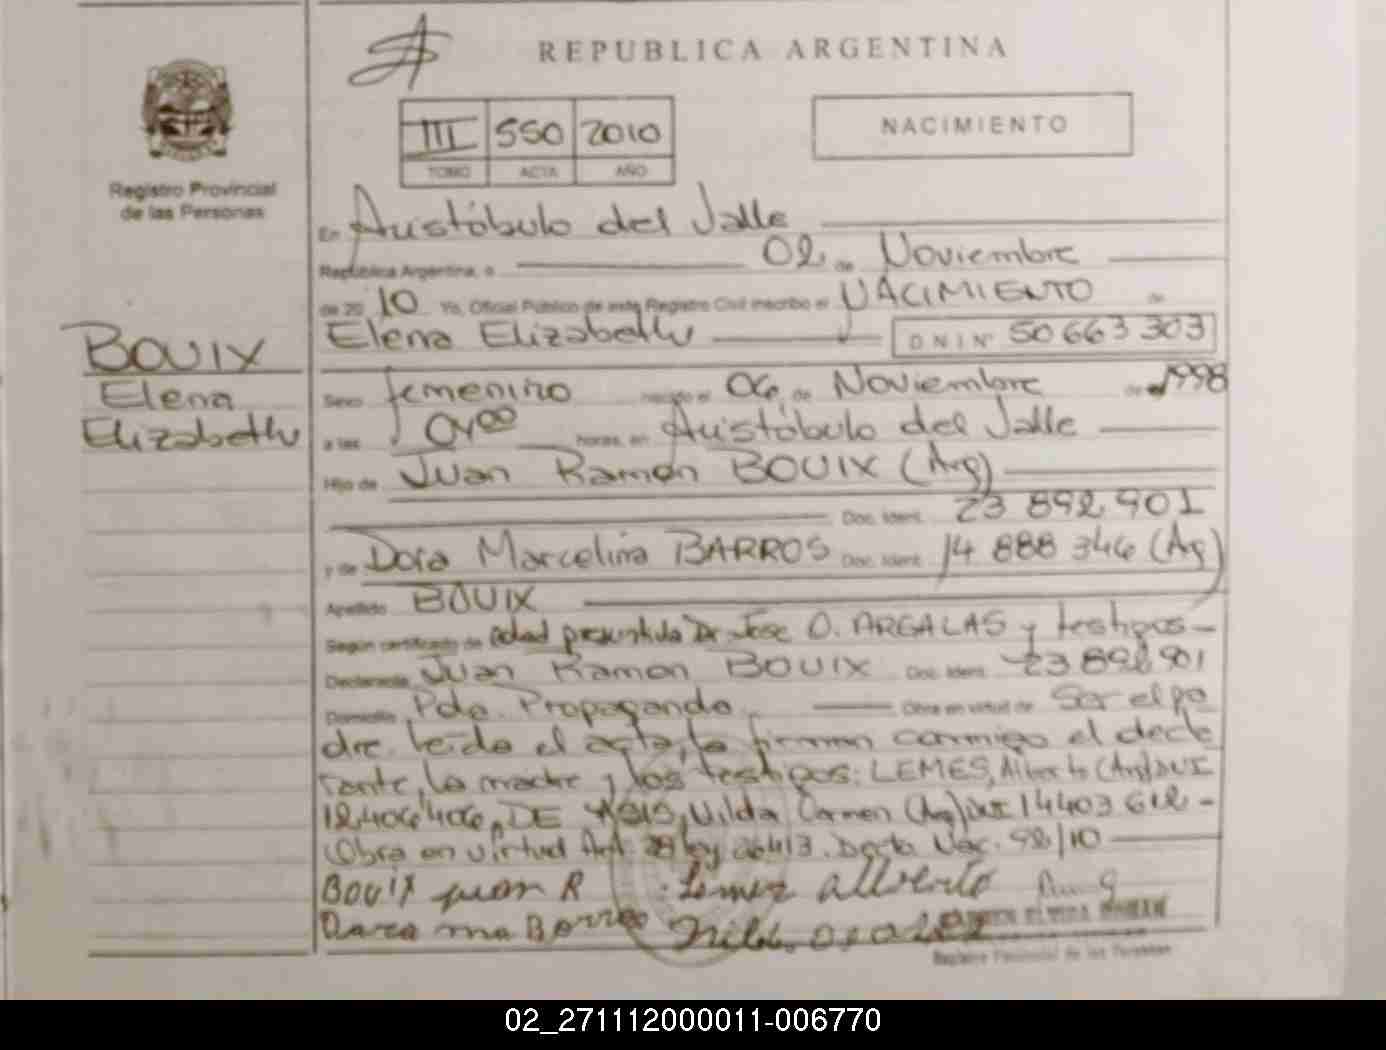 REPUBLICA ARGENTINA
III 550 2010
TOMO ACTA AÑO
NACIMIENTO
Registro Provincial
de las Personas
BOUIX
Elena
Elizabeth
En Aristóbulo del Valle
República Argentina, a 02 de Noviembre
de 20 10 Yo, Oficial Público de este Registro Civil inscribo el NACIMIENTO de
Elena Elizabeth D N I Nº 50 663 303
Sexo femenino nacido el 06 de Noviembre de 1998
a las horas, en Aristóbulo del Valle
Hijo de Juan Ramón BOUIX (Arg)
Doc. Ident. 23 892 901
y de Dora Marcelina BARROS Doc. Ident. 14 888 346 (Arg)
Apellido BOUIX
Según certificado de edad presuntiva Dr Jose O. ARGALAS y testigos
Declarante Juan Ramon BOUIX Doc. Ident. 23 892 901
Domicilio Pdo. Propaganda Obra en virtud de Ser el pa
dre. Leida el acta, la firman conmigo el decla
rante, la madre y los testigos: LEMES, Alberto (Arg) DNI
12406406, DE ASIS, Nilda Carmen (Arg) DNI 14403612
Obra en virtud Art. 28 Ley 26413. Decto Nac. 92/10
Bouix juan R Lemez alberto
Barro
Registro Provincial de las Personas
02_271112000011-006770